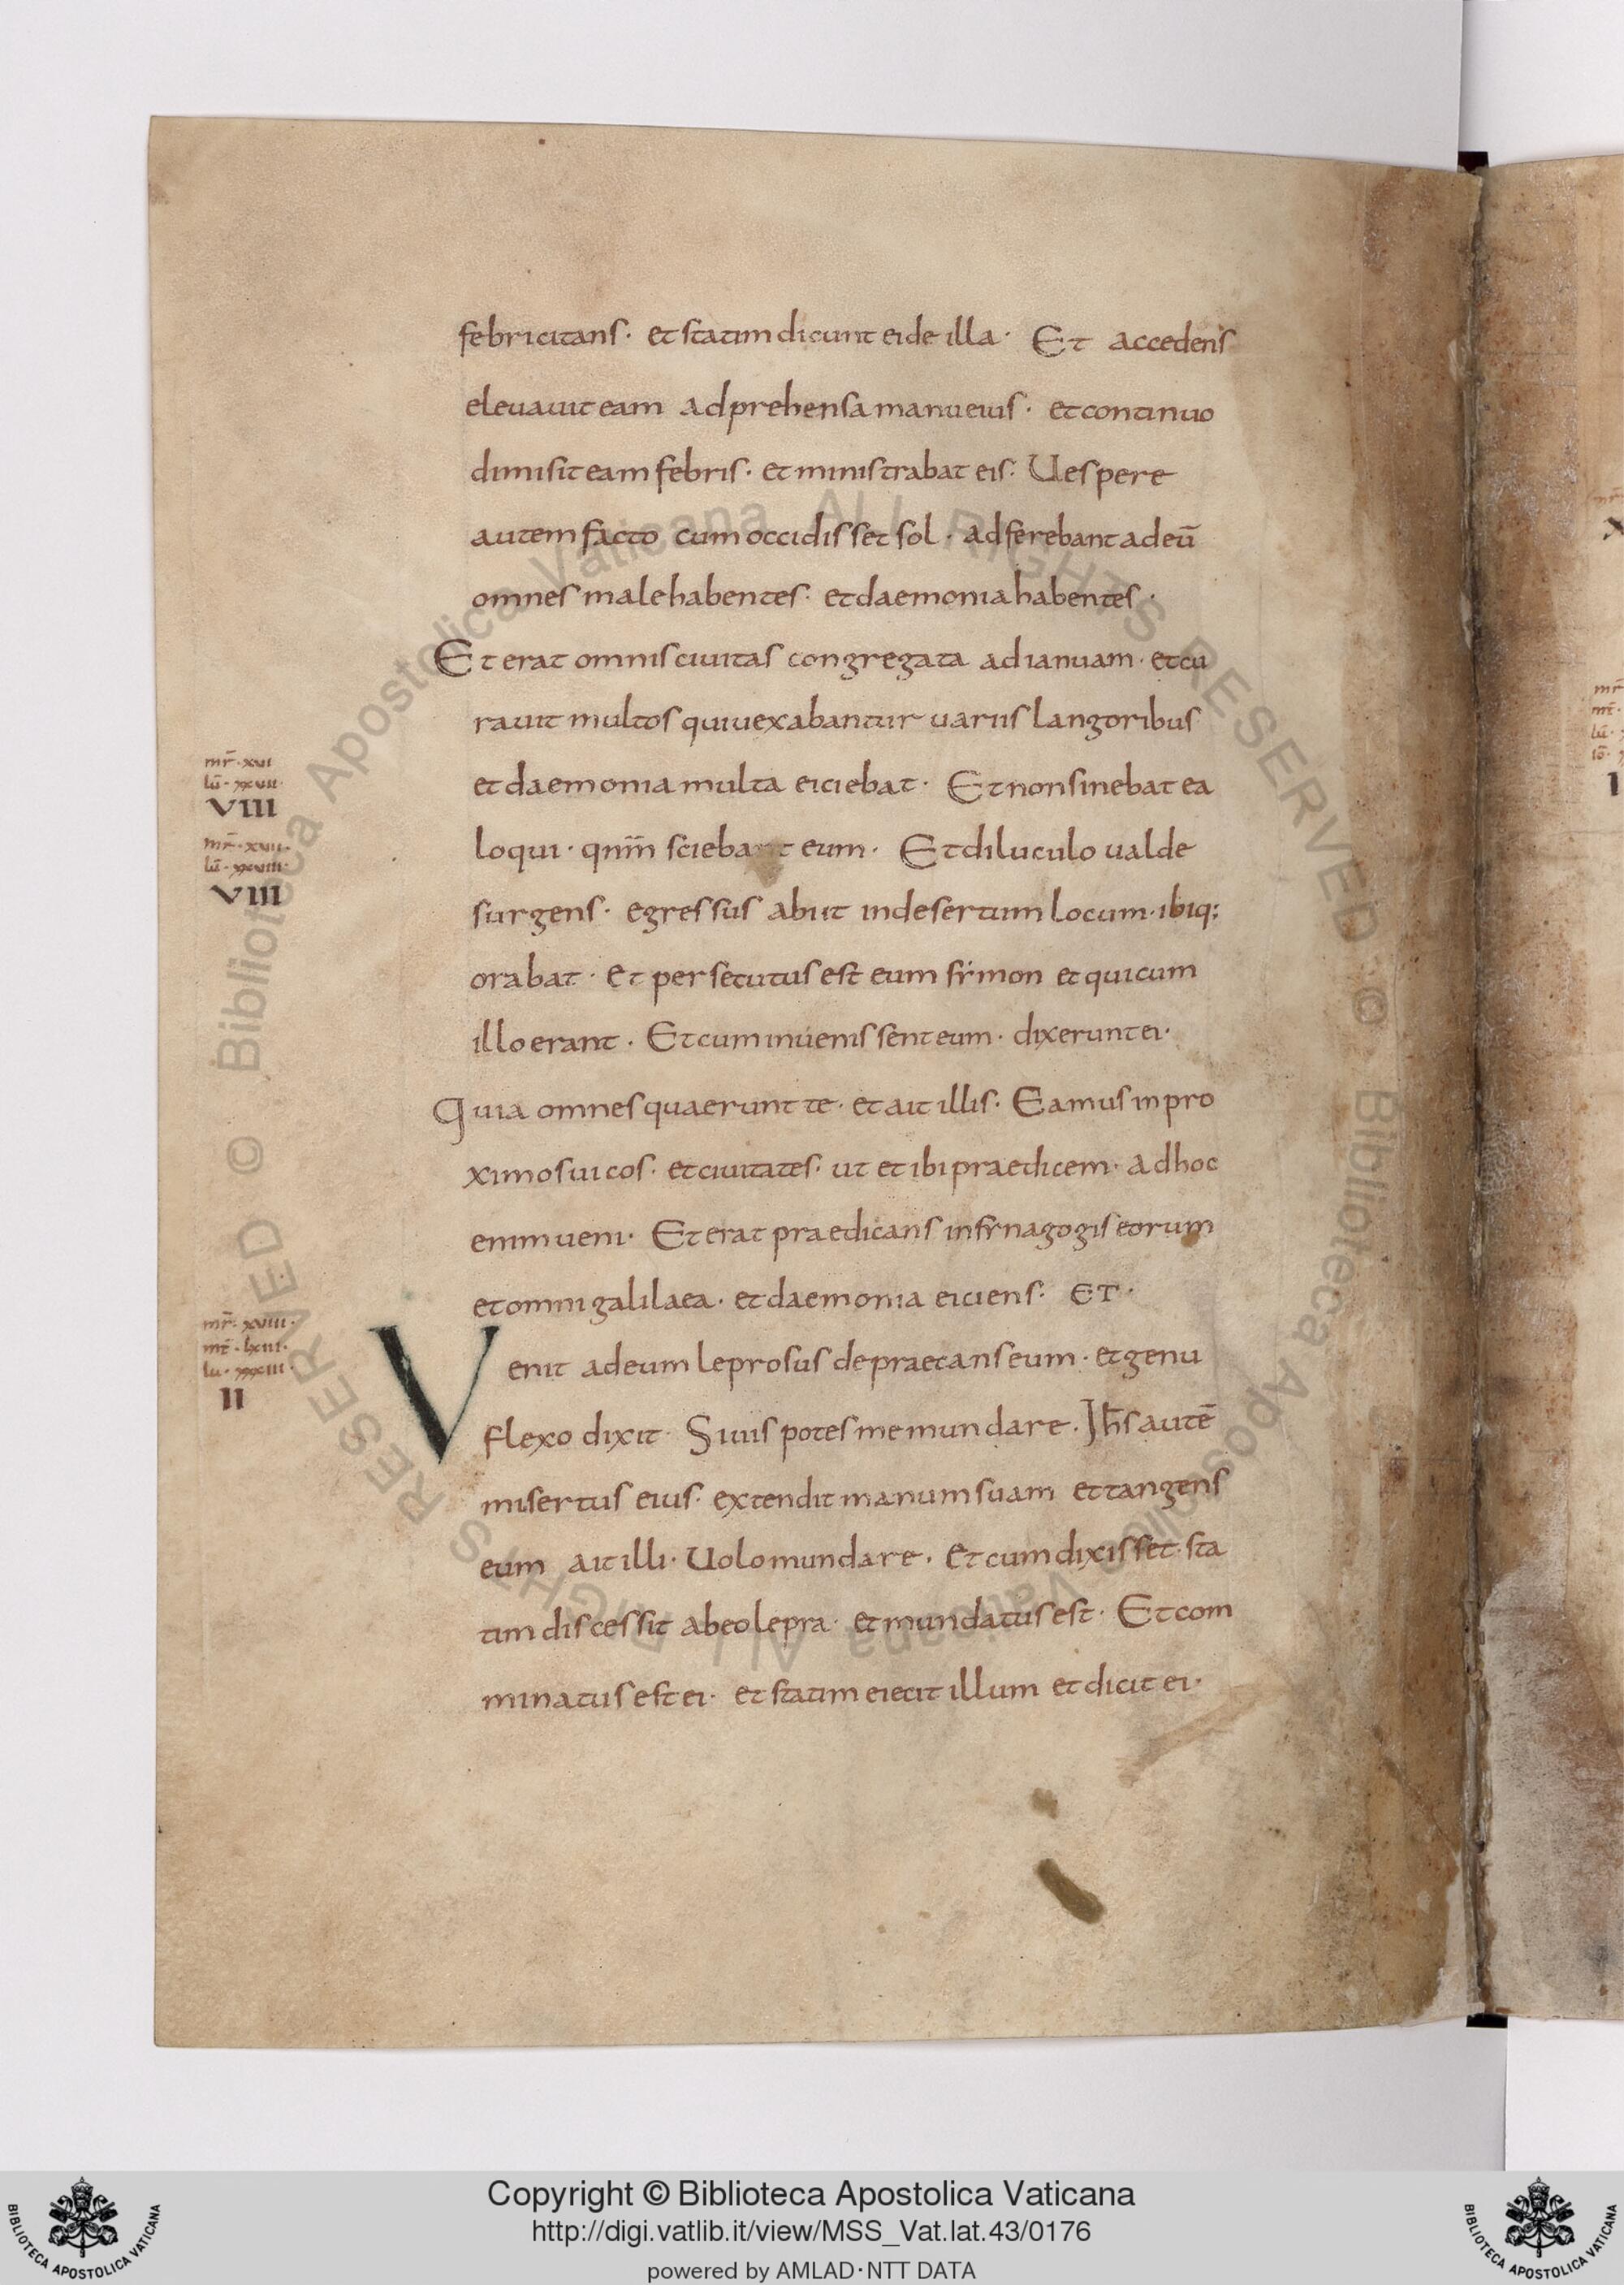 febricitans · et statim dicunt ei de illa · Et accedens
eleuauit eam adprehensa manu eius · et continuo
dimisit eam febris · et ministrabat eis · Uespere
autem facto cum occidisset sol · adferebant ad eū
omnes male habentes · et daemonia habentes ·
Et erat omnis ciuitas congregata ad ianuam · et cu
rauit multos qui uexabantur uariis langoribus
mr̄ · xvi
lū · xxvii ·
VIII
et daemonia multa eiciebat · Et non sinebat ea
mr̄ · xvii ·
lū · xxviii ·
VIII
loqui · qnm̄ sciebant eum · Et diluculo ualde
surgens · egressus abiit in desertum locum · ibiq;
orabat · et persecutus est eum symon et qui cum
illo erant · Et cum inuenissent eum · dixerunt ei ·
Quia omnes quaerunt te · et ait illis · Eamus in pro
ximos uicos · et ciuitates · ut et ibi praedicem · ad hoc
enim ueni · Et erat praedicans in synagogis eorum
et omni galilaea · et daemonia eiciens · ET ·
mr̄ · xviii ·
mt̄ · lxiii ·
lu · xxxiii ·
II
Venit ad eum leprosus depraecans eum · et genu
flexo dixit · Si uis potes me mundare · Ihs̄ autē
misertus eius · extendit manum suam et tangens
eum ait illi · Uolo mundare · Et cum dixisset · sta
tim discessit ab eo lepra · et mundatus est · Et com
minatus est ei · et statim eiecit illum et dicit ei ·
Copyright © Biblioteca Apostolica Vaticana
http://digi.vatlib.it/view/MSS_Vat.lat.43/0176
powered by AMLAD·NTT DATA
BIBLIOTECA APOSTOLICA VATICANA
BIBLIOTECA APOSTOLICA VATICANA